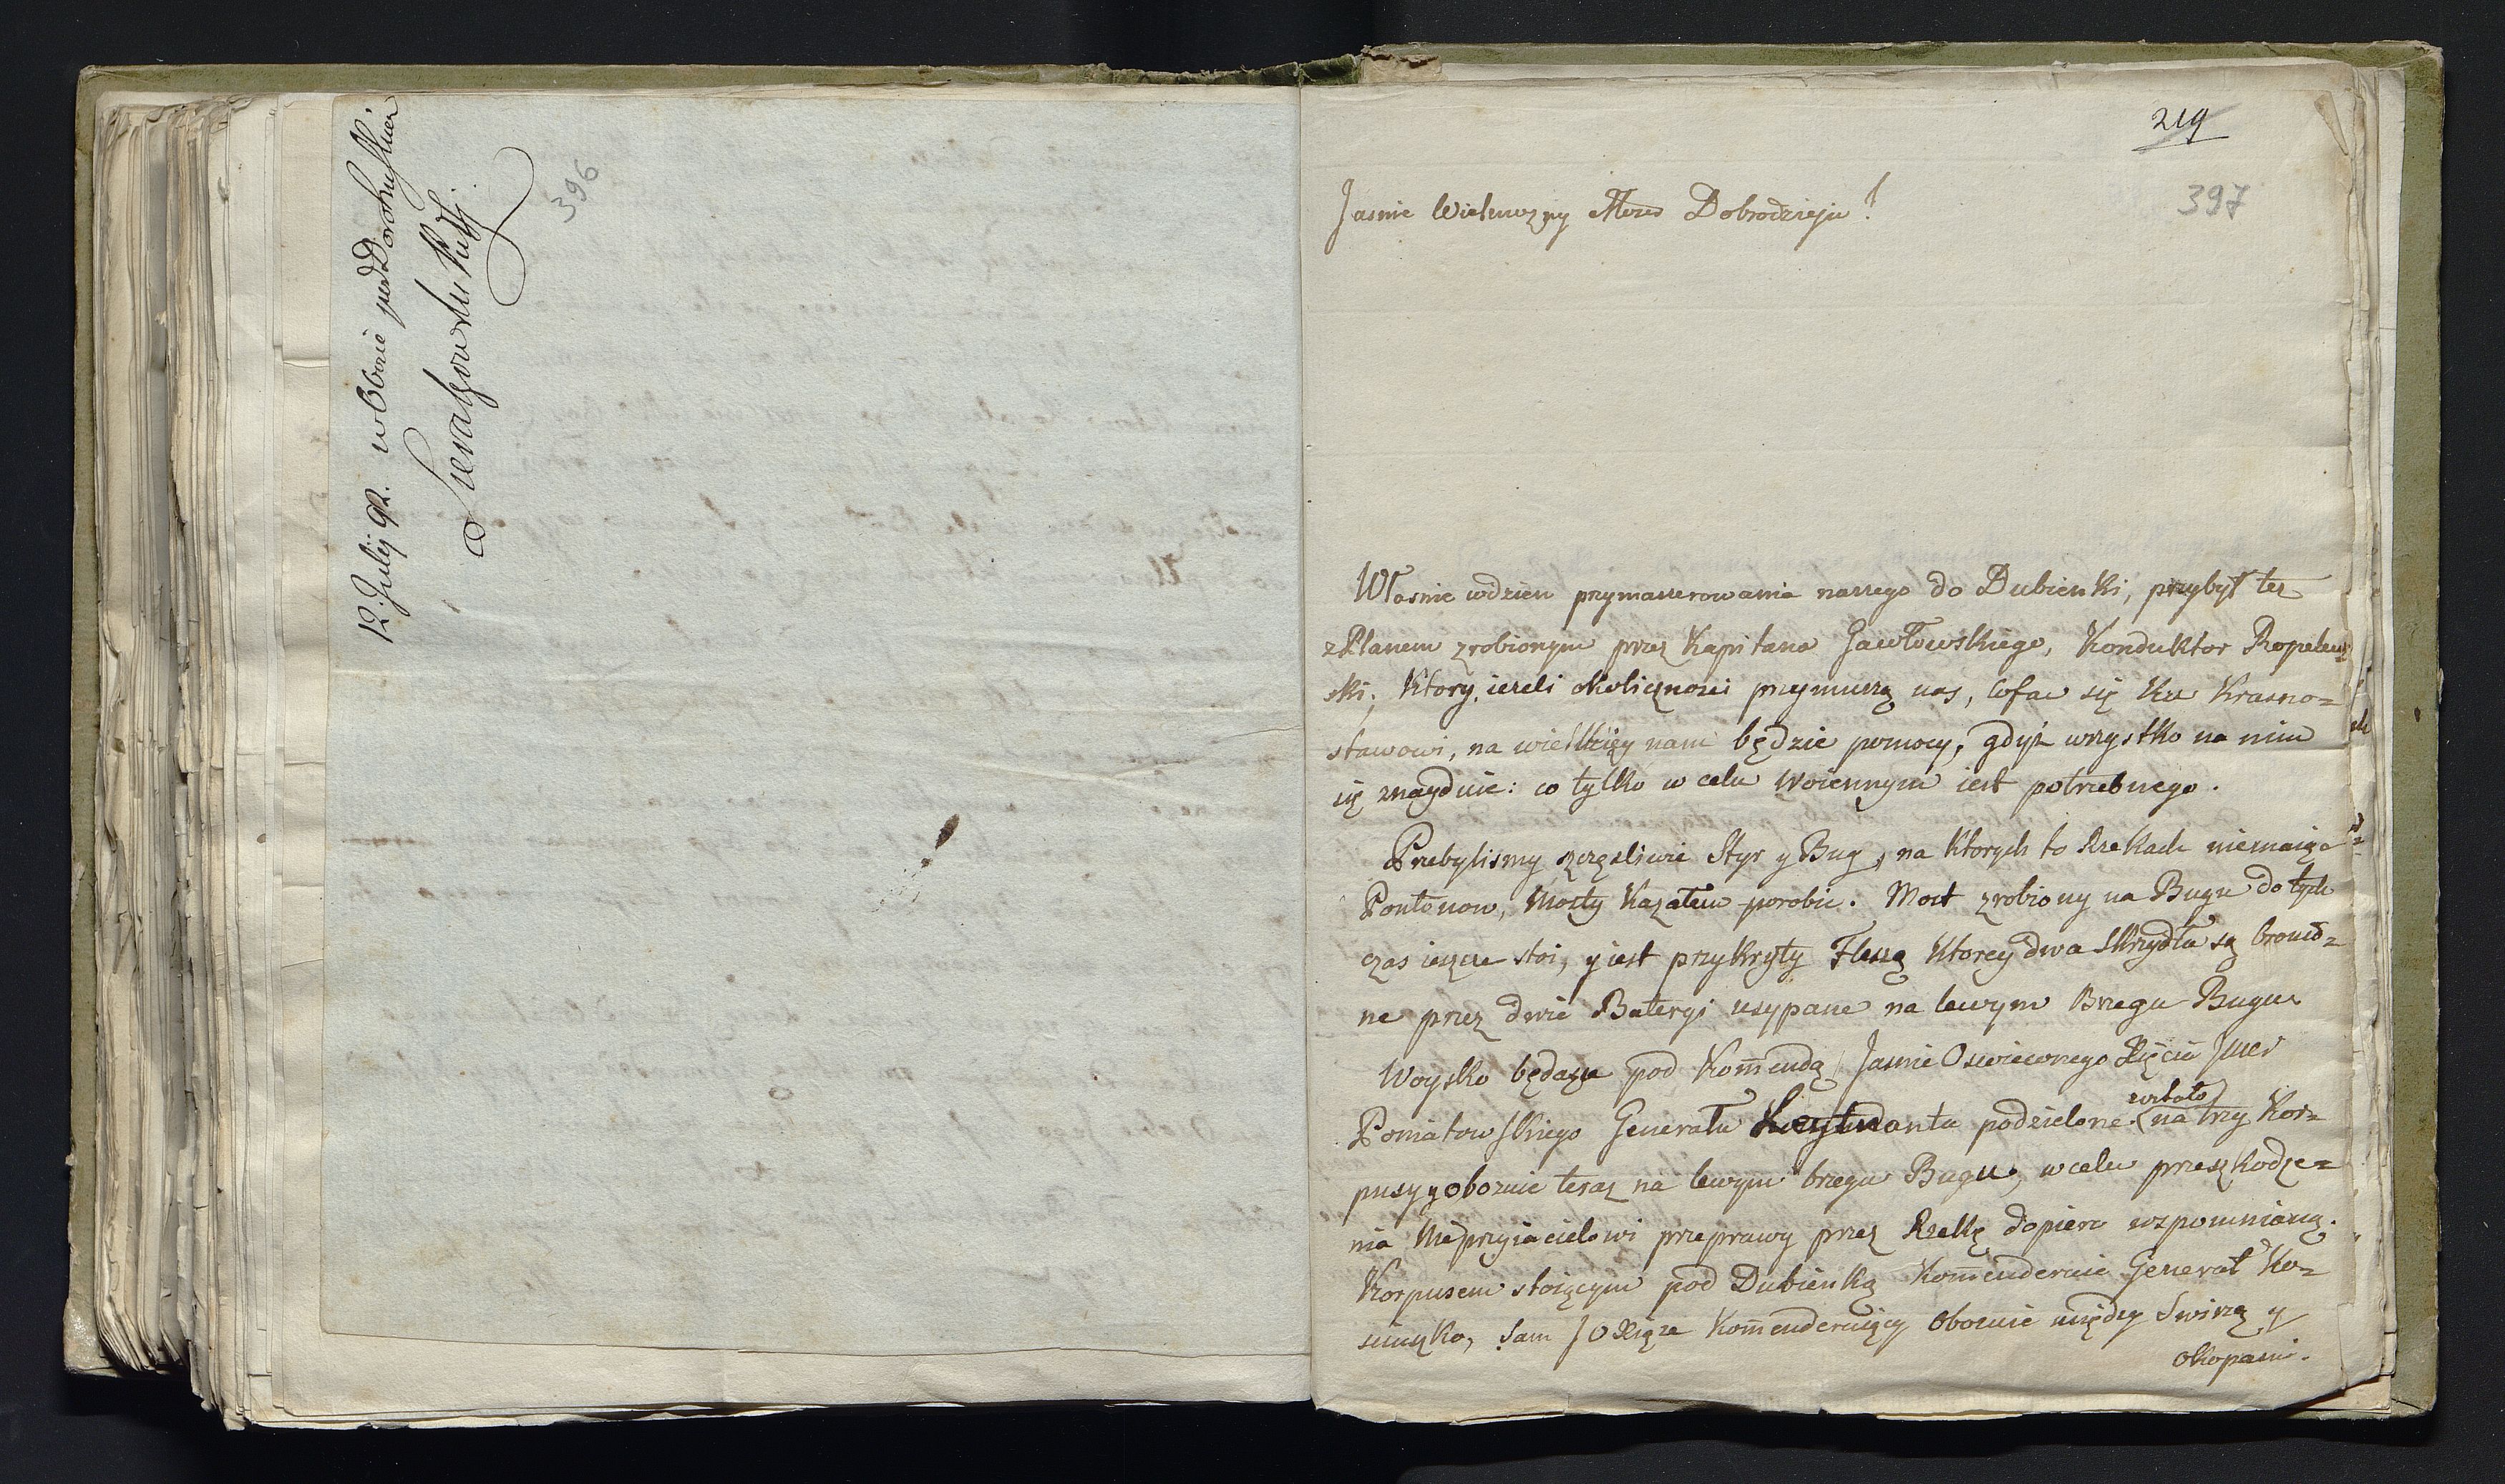 12. Julij 92. w Obozie pod Dorohuskiem
Sierakowski
396
219
397
Jasnie Wielmozny Mosci Dobrodzieju!
Włosnie wdzien przymaszerowania naszego do Dubienki, przybył tez
z Planem zrobionym przez Kapitana Gawłowskiego, Konduktor Ropelew=
ski; Ktory, iezeli okolicznosci przymuszą nas, cofac się Ku Krasno=
stawowi, na wielkiey nam będzie pomocy, gdyż wszystko na nim
się znayduie: co tylko w celu Woiennym iest potrzebnego.
Przebylismy szczęsliwie Styr y Bug, na Ktorych to Rzekach niemaiąc
Pontonow, Mosty Kazałem porobic. Most zrobiony na Bugu do tych
czas ieszcze stoi, y iest przykryty Fleszą Ktorey dwa Skrzydła są bronio=
ne przez dwie Bateryi usypane na lewym Brzegu Bugu
Woysko będące pod Kom̄endą Jasnie Oswieconego Xięcia Jmci
Poniatowskiego Generała podzielone zostało na trzy Kor=
pusy y obozuie teraz na lewym brzegu Bugu, w celu przeszkodze=
nia Nieprzyiacielowi przeprawy przez Rzekę dopiero wzpomnianą.
Korpusem stoiącym pod Dubienką Kom̄enderuie Generał Ko=
sciuszko, Sam J O Xiąże Kom̄enderuiący obozuie między Swirzą y
okopami.